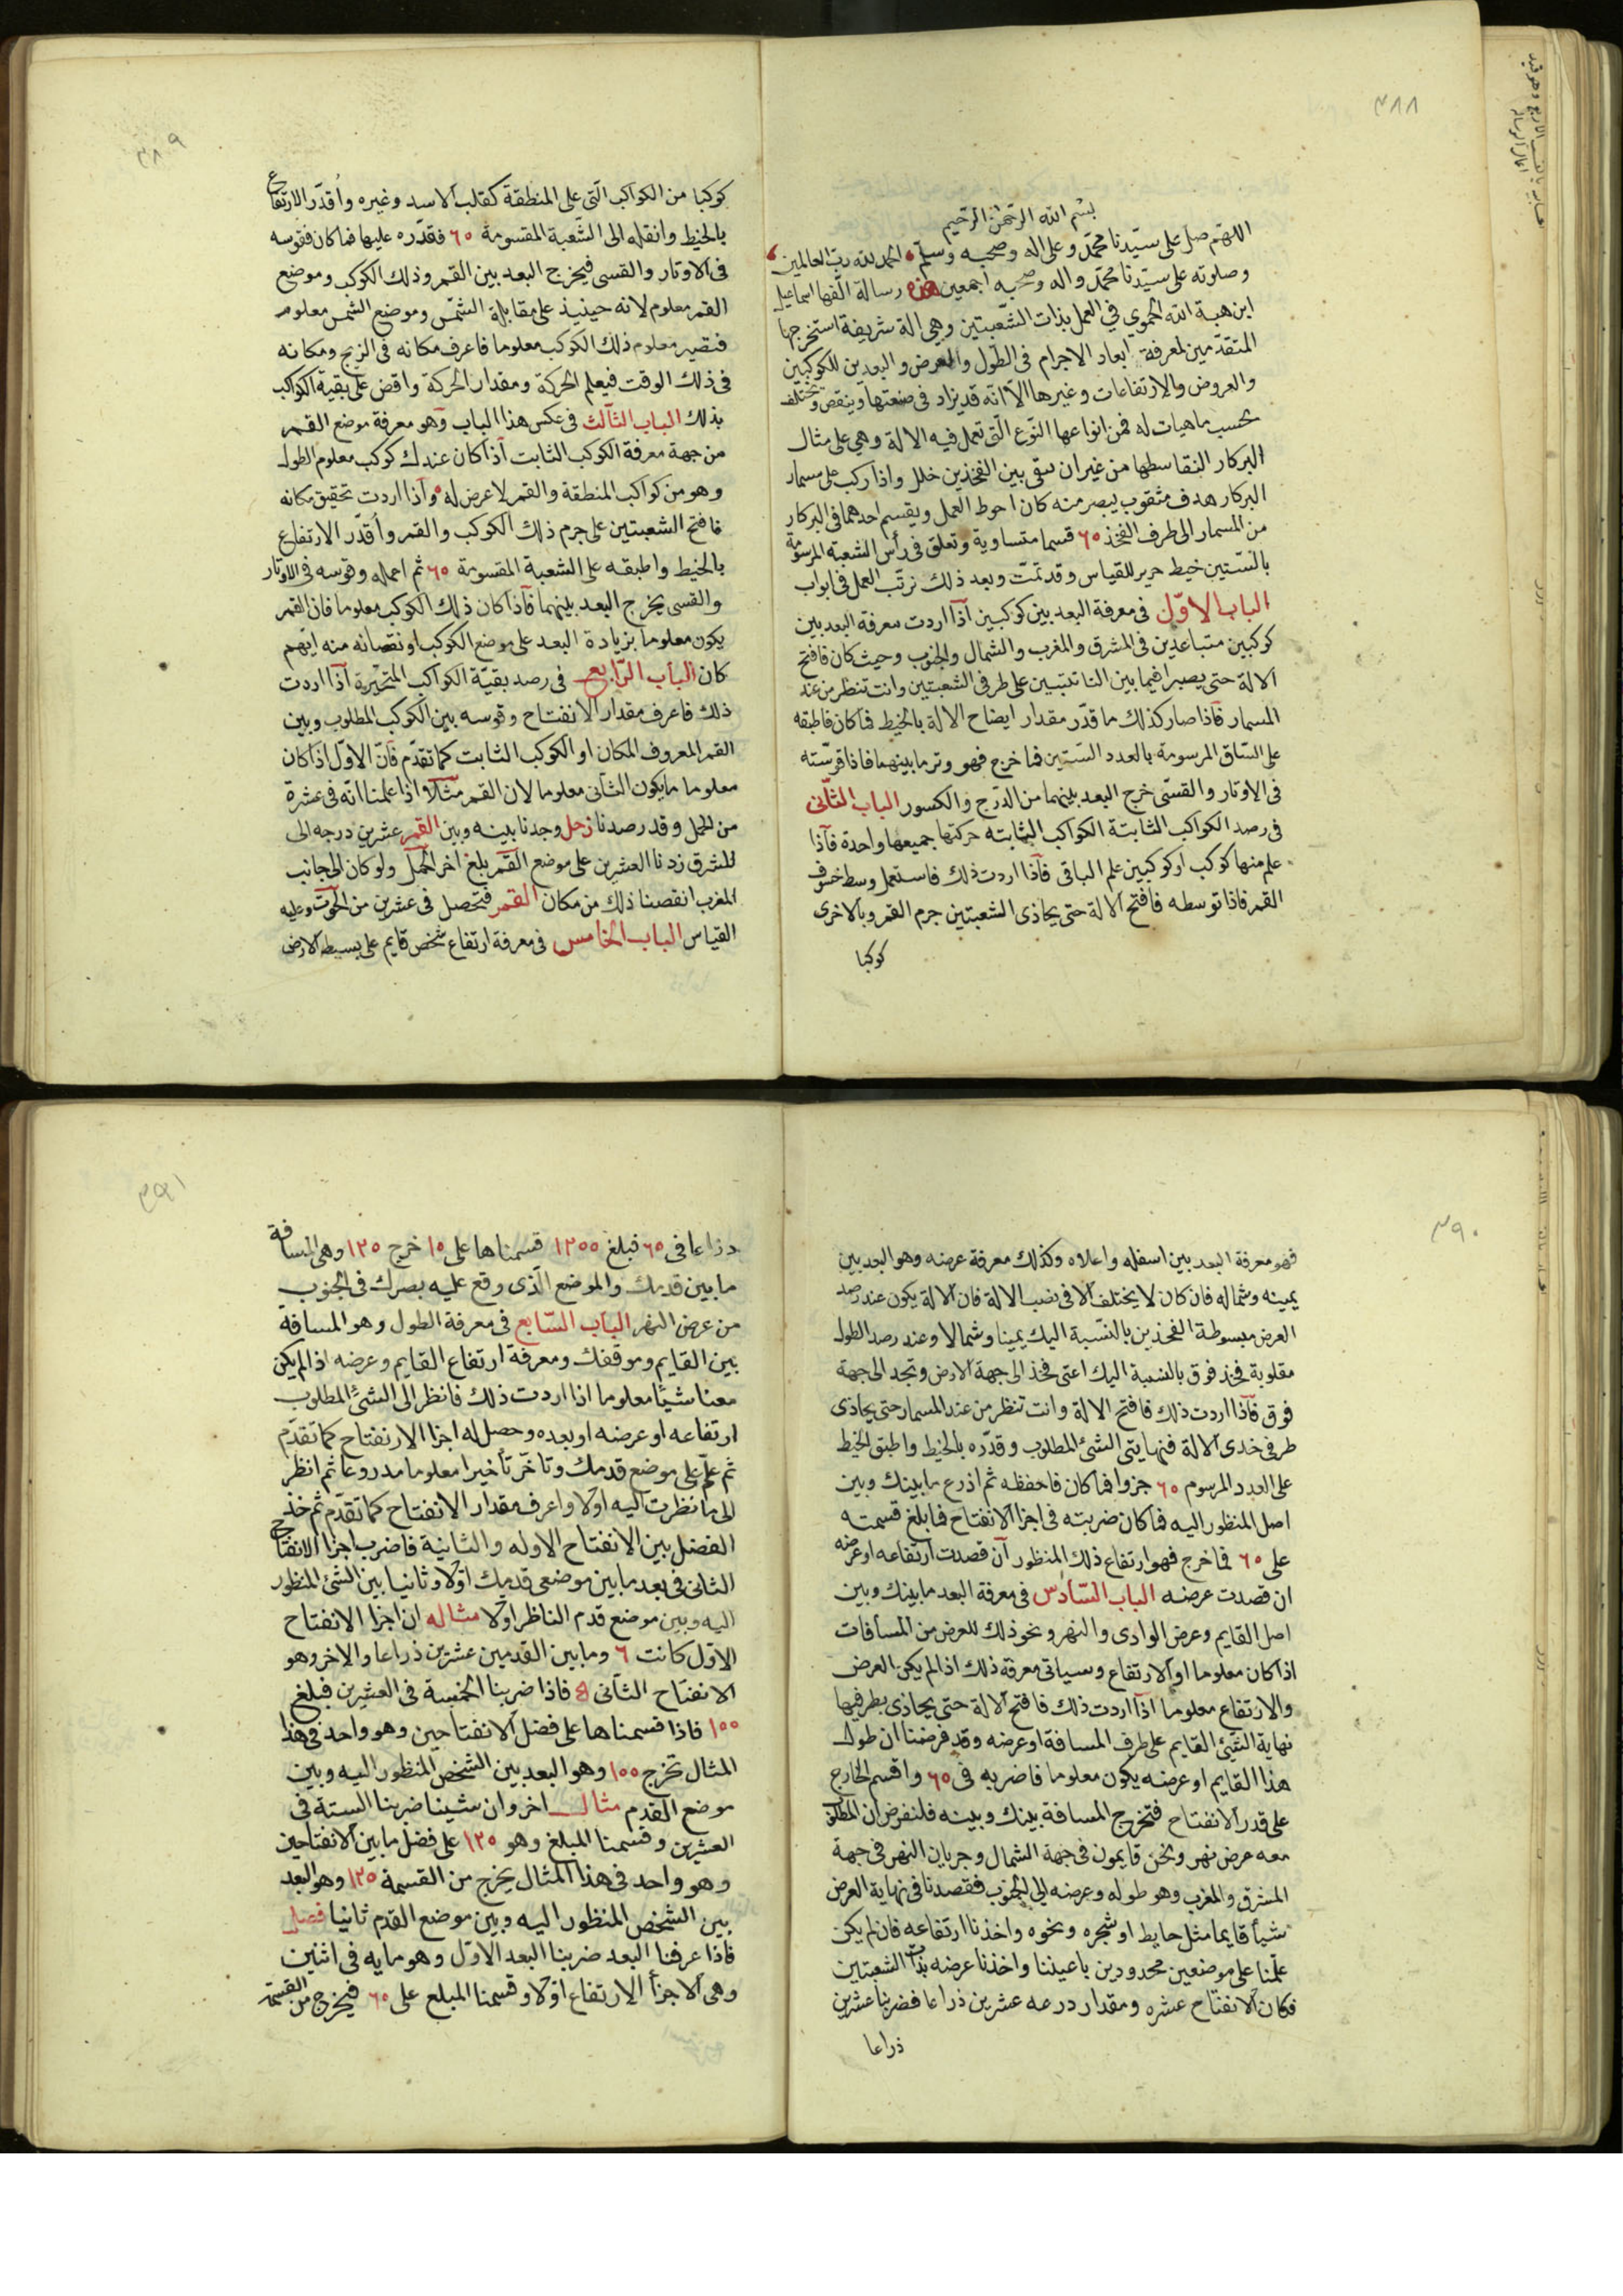 ٣٨٨
بسم الله الرحمن الرحيم
اللهم صل على سيدنا محمد وعلى اله وصحبه وسلم الحمد لله رب العالمين
وصلوته على سيدنا محمد واله وصحبه اجمعين هذه رسالة الفها اسماعيل
ابن هبة الله الحموي في العمل بذات الشعبتين وهي الة شريفة استخرجها
المتقدمين لمعرفة ابعاد الاجرام فى الطول والعرض والبعدين للكوكبين
والعروض والارتفاعات وغيرها الا انه قد يزاد فى صنعتها وينقص وتختلف
بحسب ماهيات له فمن انواعها النوع التى تعمل فيه الالة وهي على مثال
البركار النقاسطها من غير ان يبقى بين الفخذين خلل واذا ركب على مسمار
البركار هدف مثقوب يبصر منه كان احوط العمل ويقسم احدهما فى البركار
من المسمار الى طرف الفخذ ٦٠ قسما متساوية وتعلق فى رأس الشعبة المرسومة
بالستين خيط حرير للقياس وقد تمت وبعد ذلك نرتب العمل فى ابواب
الباب الاول فى معرفة البعد بين كوكبين اذا اردت معرفة البعد بين
كوكبين متباعدين فى المشرق والمغرب والشمال والجنوب وحيث كان فافتح
الالة حتى يصيرا فيما بين الناتئتين على طرفى الشعبتين وانت تنظر من عند
المسمار فاذا صار كذلك ما قدر مقدار ايضاح الالة بالخيط فما كان فاطبقه
على الساق المرسومة بالعدد الستين فما خرج فهو وتر ما بينهما فاذا قوسته
فى الاوتار والقسى خرج البعد بينهما من الدرج والكسور الباب الثانى
فى رصد الكواكب الثابتة الكواكب الثابته حركتها جميعها واحدة فاذا
علم منها كوكب او كوكبين علم الباقى فاذا اردت ذلك فاستعمل وسط خسوف
القمر فاذا توسطه فافتح الالة حتى يحاذى الشعبتين جرم القمر وبالاخرى
كوكبا
٣٨٩
كوكبا من الكواكب التى على المنطقة كقلب الاسد وغيره واقدر الارتفاع
بالخيط وانقله الى الشعبة المقسومة ٦٠ فقدره عليها فما كان فقوسه
فى الاوتار والقسى فيخرج البعد بين القمر وذلك الكوكب وموضع
القمر معلوم لانه حينيذ على مقابلة الشمس وموضع الشمس معلوم
فتصير معلوم ذلك الكوكب معلوما فاعرف مكانه فى الزيج ومكانه
فى ذلك الوقت فيعلم الحركة ومقدار الحركة واقض على بقية الكواكب
بذلك الباب الثالث فى عكس هذا الباب وهو معرفة موضع القمر
من جهة معرفة الكوكب الثابت اذا كان عندك كوكب معلوم الطول
وهو من كواكب المنطقة والقمر لا عرض له واذا اردت تحقيق مكانه
فافتح الشعبتين على جرم ذلك الكوكب والقمر واقدر الارتفاع
بالخيط واطبقه على الشعبة المقسومة ٦٠ ثم احمله وقوسه فى الاوتار
والقسى يخرج البعد بينهما فاذا كان ذلك الكوكب معلوما فان القمر
يكون معلوما بزيادة البعد على موضع الكوكب او نقصانه منه ايهم
كان الباب الرابع فى رصد بقية الكواكب المتحيرة اذا اردت
ذلك فاعرف مقدار الانفتاح وقوسه بين الكوكب المطلوب وبين
القمر المعروف المكان او الكوكب الثابت كما تقدم فان الاول اذا كان
معلوما ما يكون الثانى معلوما لان القمر مثلا اذا علمنا انه فى عشرة
من الحمل وقد رصدنا زحل وجدنا بينه وبين القمر عشرين درجه الى
المشرق زدنا العشرين على موضع القمر بلغ اخر الحمل ولو كان الى جانب
المغرب انقصنا ذلك من مكان القمر فتحصل فى عشرين من الحوت وعليه
القياس الباب الخامس فى معرفة ارتفاع شخص قايم على بسيط الارض
٣٩٠
فهو معرفة البعد بين اسفله واعلاه وكذلك معرفة عرضه وهو البعد بين
يمينه وشماله فان كان لا يختلف الا فى نصب الالة فان الالة يكون عند رصد
العرض مبسوطة الفخذين بالنسبة اليك يمينا وشمالا وعند رصد الطول
مقلوبة فخذ فوق بالنسبة اليك اعنى فخذ الى جهة الارض وتجد الى جهة
فوق فاذا اردت ذلك فافتح الالة وانت تنظر من عند المسمار حتى يحاذى
طرفى خدى الالة فنهايتى الشئ المطلوب وقدره بالخيط واطبق الخيط
على العدد المرسوم ٦٠ جزوا فما كان فاحفظه ثم اذرع ما بينك وبين
اصل المنظور اليه فما كان ضربته فى اجزا الانفتاح فما بلغ قسمته
على ٦٠ فما خرج فهو ارتفاع ذلك المنظور ان قصدت ارتفاعه او عرضه
ان قصدت عرضه الباب السادس فى معرفة البعد ما بينك وبين
اصل القايم وعرض الوادى والنهر ونحو ذلك للعرض من المسافات
اذا كان معلوما او الارتفاع وسياتى معرفة ذلك اذا لم يكن العرض
والارتفاع معلوما اذا اردت ذلك فافتح الالة حتى يحاذى بطرفيها
نهاية الشئ القايم على طرف المسافة او عرضه وقد فرضنا ان طول
هذا القايم او عرضه يكون معلوما فاضربه فى ٦٠ واقسم الخارج
على قدر الانفتاح فتخرج المسافة بينك وبينه فلنفرض ان المطلوب
معه عرض نهر ونحن قايمون فى جهة الشمال وجريان النهر فى جهة
المشرق والمغرب وهو طوله وعرضه الى الجنوب فقصدنا فى نهاية العرض
شيأ قايما مثل حايط او شجره ونحوه واخذنا ارتفاعه فان لم يكن
علمنا على موضعين محدودين باعيننا واخذنا عرضه بذات الشعبتين
فكان الانفتاح عشره ومقدار درعه عشرين ذراعا فضربنا عشرين
ذراعا
٣٩١
ذراعا فى ٦٠ فبلغ ١٢٠٠ قسمناها على ١٠ خرج ١٢٠ وهى المسافة
ما بين قدمك والموضع الذى وقع عليه بصرك فى الجنوب
من عرض النهر الباب السابع فى معرفة الطول وهو المسافة
بين القايم وموقفك ومعرفة ارتفاع القايم وعرضه اذا لم يكن
معنا شيئا معلوما اذا اردت ذلك فانظر الى الشئ المطلوب
ارتفاعه او عرضه او بعده وحصل له اجزا الانفتاح كما تقدم
ثم علم على موضع قدمك وتاخر تأخيرا معلوما مذروعا ثم انظر
الى ما نظرت اليه اولا واعرف مقدار الانفتاح كما تقدم ثم خذ
الفضل بين الانفتاح الاوله والثانية فاضرب اجزا الانفتاح
الثانى فى بعد ما بين موضعى قدميك اولا وثانيا بين الشئ المنظور
اليه وبين موضع قدم الناظر اولا مثاله ان اجزا الانفتاح
الاول كانت ٦ وما بين القدمين عشرين ذراعا والاخر وهو
الانفتاح الثانى ٥ فاذا ضربنا الخمسة فى العشرين فبلغ
١٠٠ فاذا قسمناها على فضل الانفتاحين وهو واحد فى هذا
المثال تخرج ١٠٠ وهو البعد بين الشخص المنظور اليه وبين
موضع القدم مثال اخر وان شينا ضربنا الستة فى
العشرين وقسمنا المبلغ وهو ١٢٠ على فضل ما بين الانفتاحين
وهو واحد فى هذا المثال يخرج من القسمة ١٢٠ وهو البعد
بين الشخص المنظور اليه وبين موضع القدم ثانيا فصل
فاذا عرفنا البعد ضربنا البعد الاول وهو مايه فى اثنين
وهى الاجزأ الارتفاع اولا وقسمنا المبلغ على ٦٠ فيخرج من القسمة